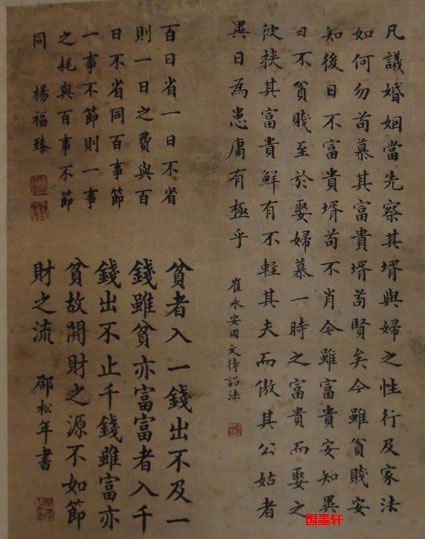 凡議婚姻當先察其壻與婦之性行及家法
如何勿苟慕其富貴壻苟賢矣今雖貧賤安
知後日不富貴壻苟不肖今雖富貴安知異
日不貧賤至於娶婦慕一時之富貴而娶之
彼挾其富貴鮮有不輕其夫而傲其公姑者
異日為患庸有極乎
崔永安用文待詔法
百日省一日不省
則一日之費與百
日不省同百事節
一事不節則一事
之耗與百事不節
同 楊福臻
貧者入一錢出不及一
錢雖貧亦富富者入千
錢出不止千錢雖富亦
貧故開財之源不如節
財之流 邵松年書
国墨轩